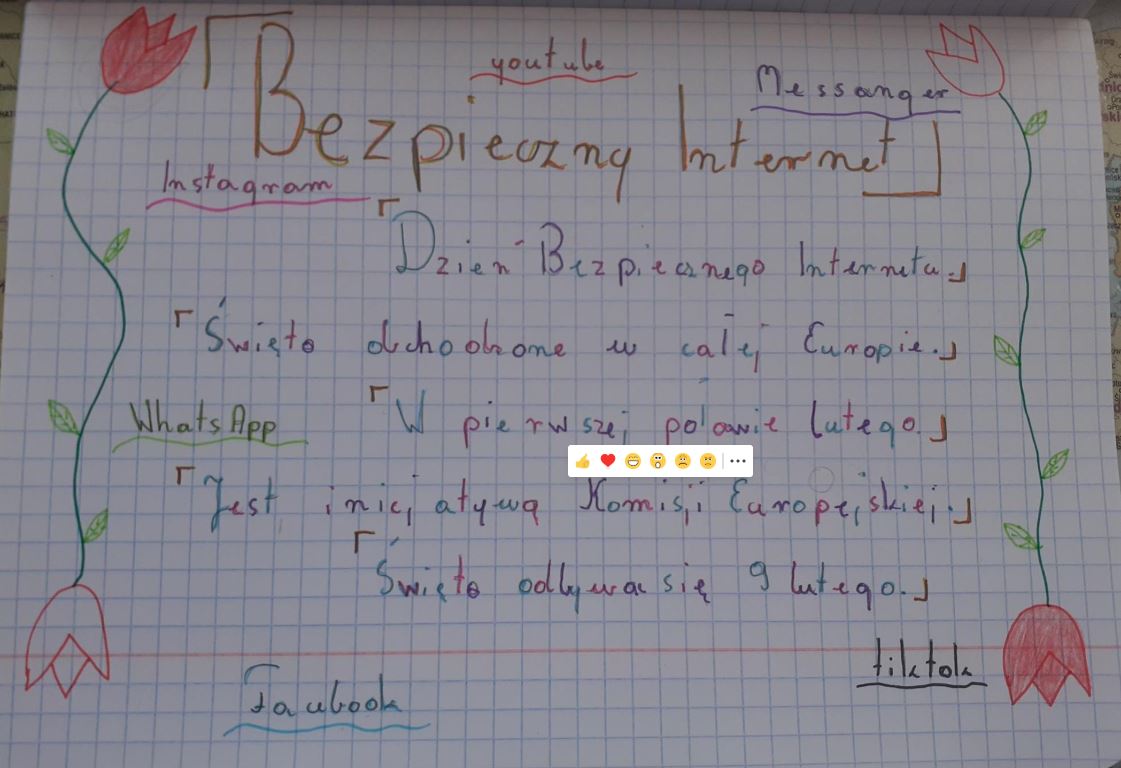 youtube
Messanger
Bezpieczny Internet
Instagram
Dzień Bezpiecznego Internetu.
Święto obchodzone w całej Europie.
WhatsApp
W pierwszej połowie lutego.
Jest inicjatywą Komisji Europejskiej.
Święto odbywa się 9 lutego.
tiktok
Facebook